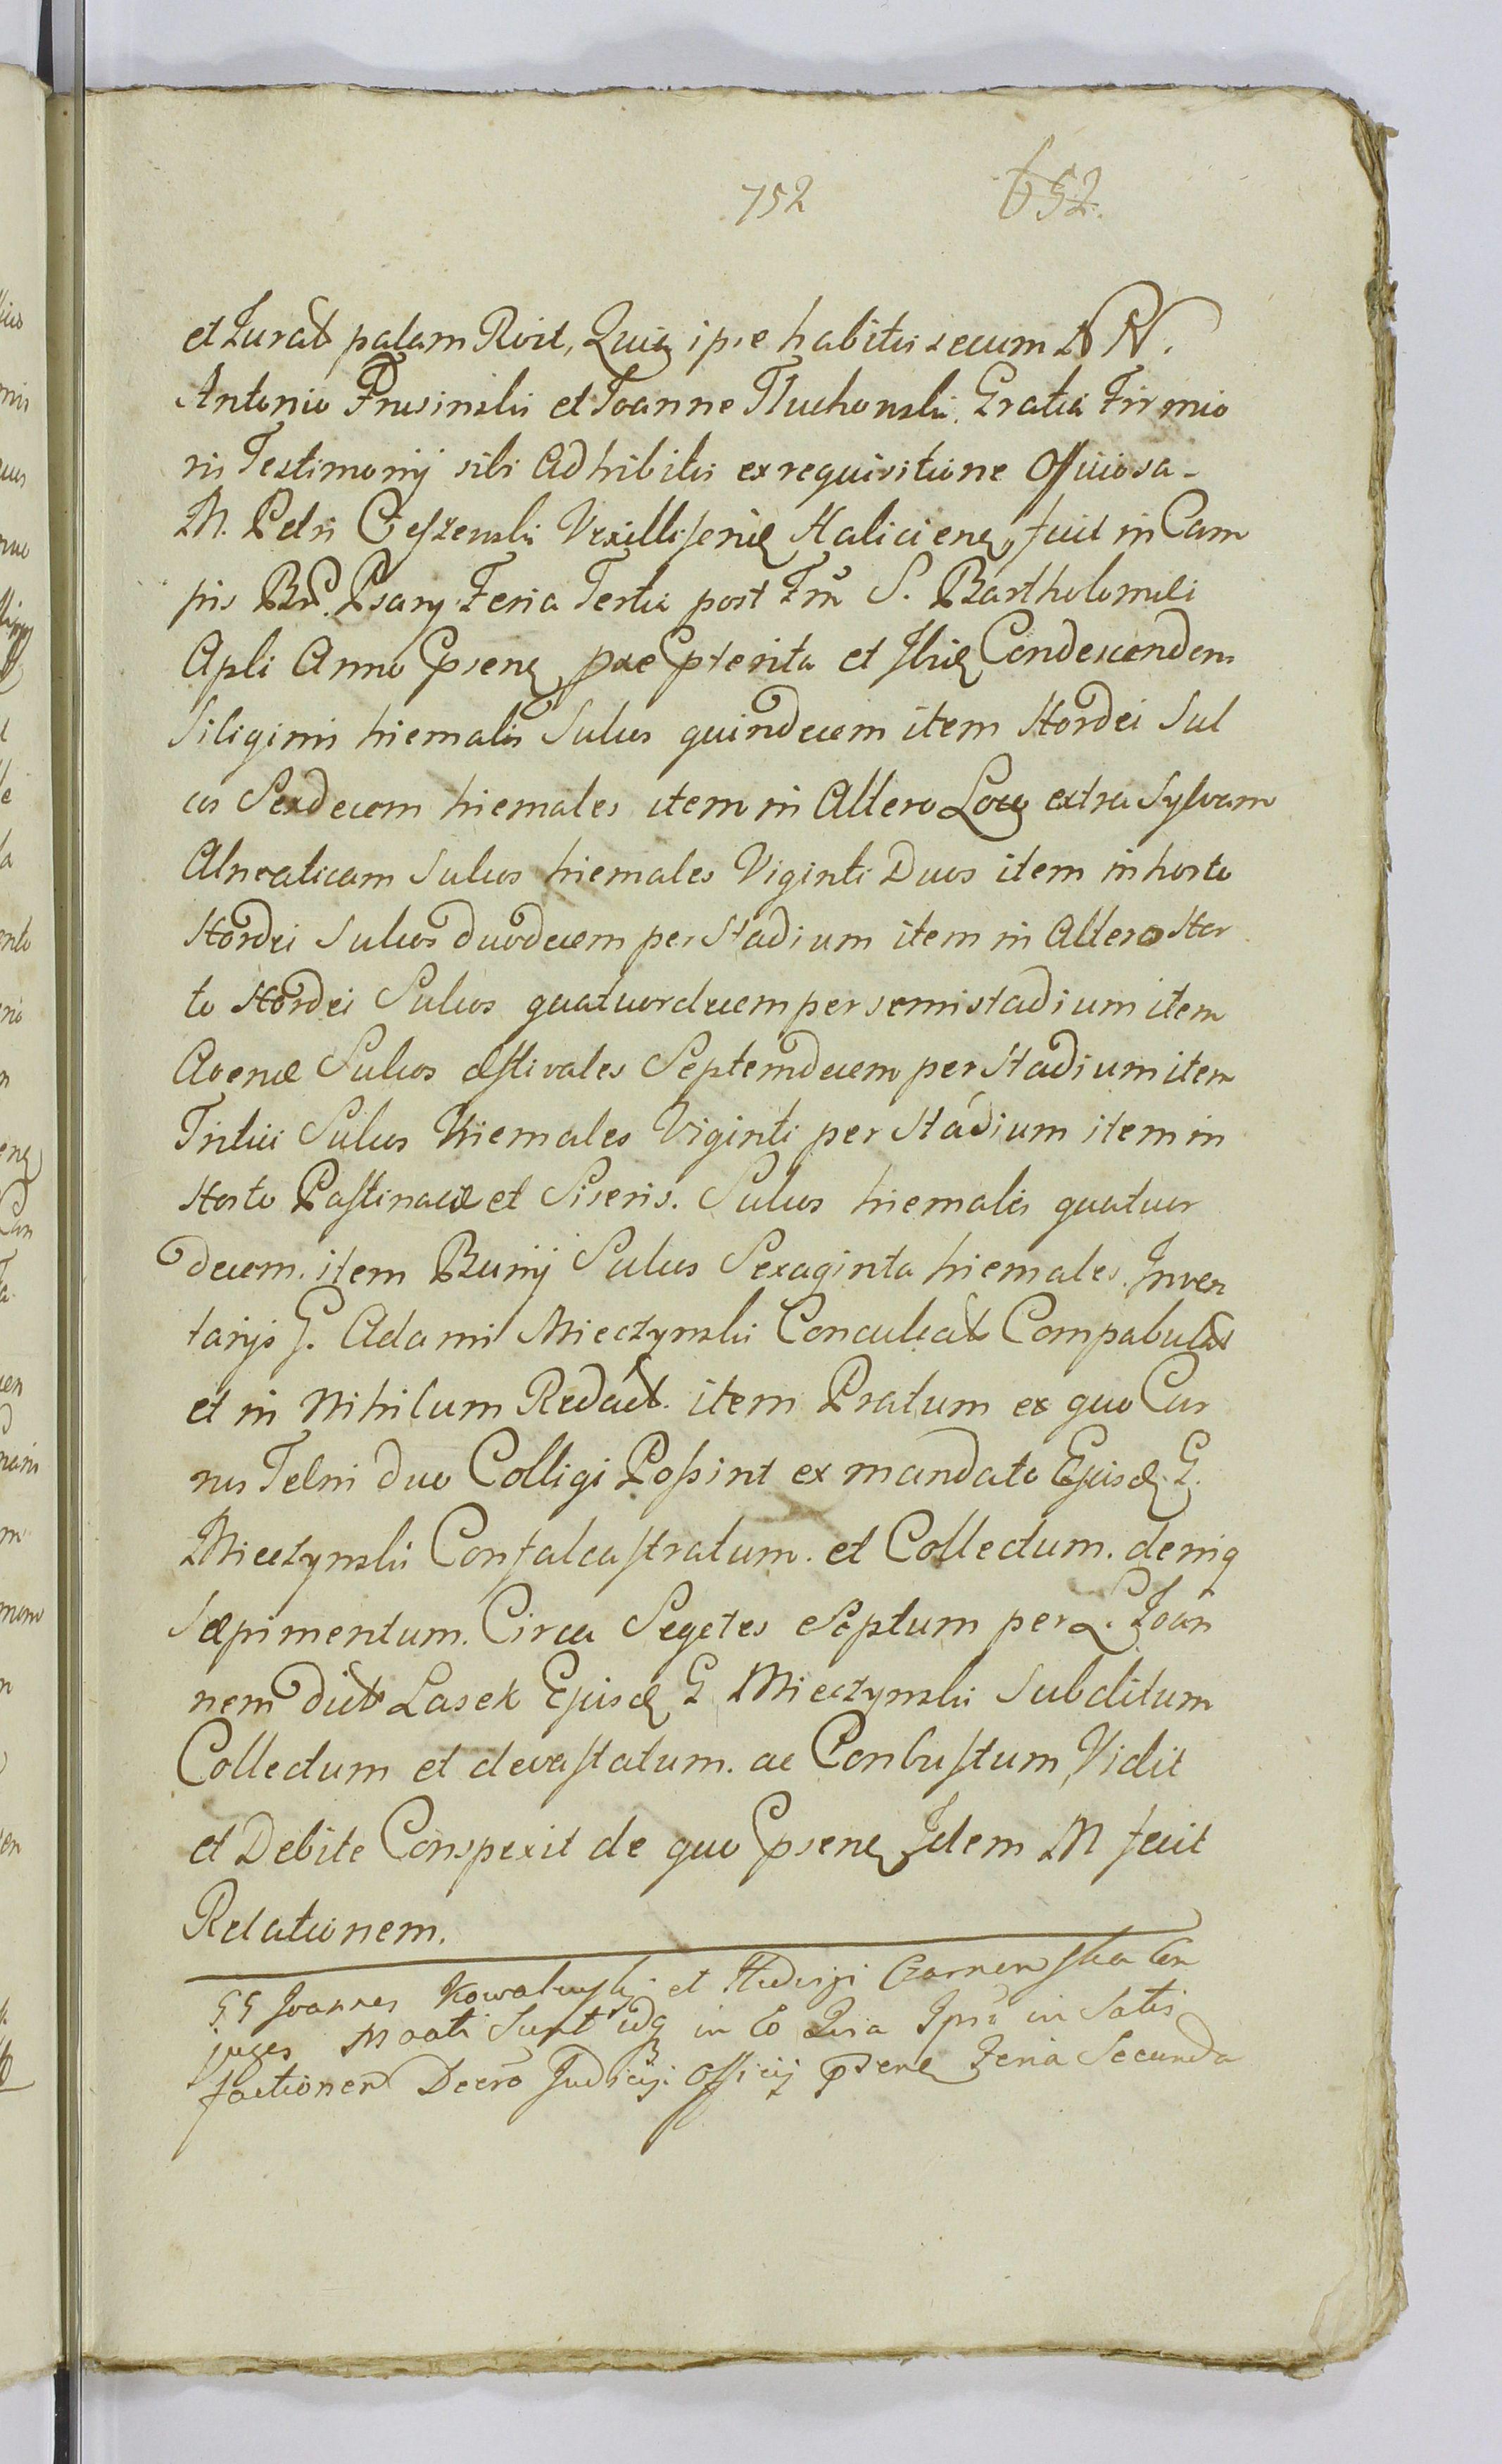 752 652.
et Jurat palam Rvit, Quia ipse habitis secum NN.
Antonio Prusinski et Joanne Tluchowski. Gratia Firmio
ris Testimonij sibi Adhibitis ex requisitione Officiosa
M. Petri Cieszewski Vexilliferid Haliciens, fuit in Cam
pis Bn. Psary Feria Tertia post Fm S. Bartholomaei
Apli Anno Psenq prae Pterita et Ibiq Condescendens
Siliginis hiemalis Sulcos quindecem item Hordei Sul
cos Sexdecem hiemales item in Altero Loco extra Sylvam
Alneaticam Sulcos hiemales Viginti Duos item in horto
Hordei Sulcos duodecem per Stadium item in Altero Hor
to Hordei Sulcos quatuordecem per semistadium item
Avenæ Sulcos æstivales Septemdecem per Stadium item
Tritici Sulcos Hiemales Viginti per Stadium item in
Horto Pastinacæ et Siseris. Sulcos hiemales quatuor
decem. item Bunij Sulcos Sexaginta hiemales. Inven
tarijs G. Adami Mieczynski Conculcat Compabulat
et in Nihilum Redact. item Pratum ex quo Cur
rus Telni duo Colligi Possint ex mandato Ejusd G.
Mieczynski Confalcastratum. et Collectum. deniq
Sæpimentum. Circa Segetes Septum per L. Joan
nem dict Lasek Ejusd G Mieczynski Subditum
Collectum et devastatum. ac Conbustum, Vidit
et Debite Conspexit de quo Psenq Idem M fecit
Relationem.
GG Joannes Kowalewski et Hedvigi Con
juges Moati Sunt idq in Eo Quia Ipsi in Satis
factionem Decro Judicij Officij Psenq Feria Secunda